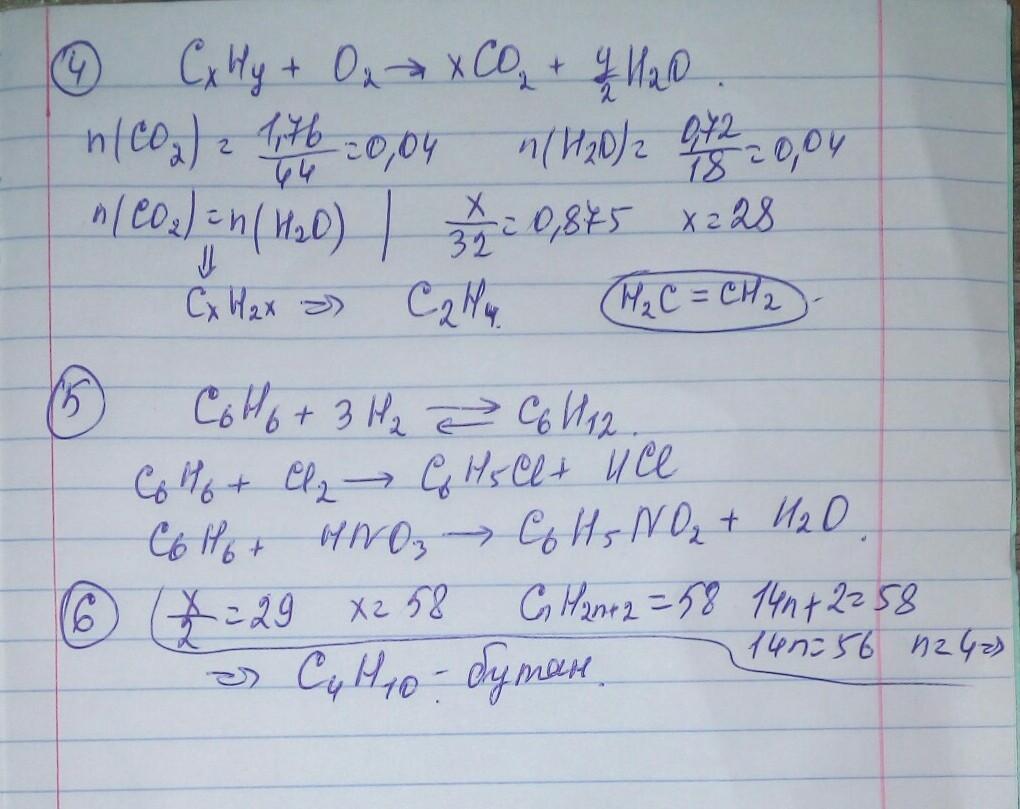 ④ CxHy + O₂ → xCO₂ + y/2 H₂O.
n(CO₂) = 1,76/44 = 0,04 n(H₂O) = 0,72/18 = 0,04
n(CO₂) = n(H₂O) | x/32 = 0,875 x = 28
⇓
CxH₂x ⇒ C₂H₄. H₂C = CH₂.
⑤ C₆H₆ + 3H₂ ⇌ C₆H₁₂.
C₆H₆ + Cl₂ → C₆H₅Cl + HCl
C₆H₆ + HNO₃ → C₆H₅NO₂ + H₂O.
⑥ x/2 = 29 x = 58 CnH2n+2 = 58 14n+2=58
14n=56 n=4⇒
⇒ C₄H₁₀ - бутан.